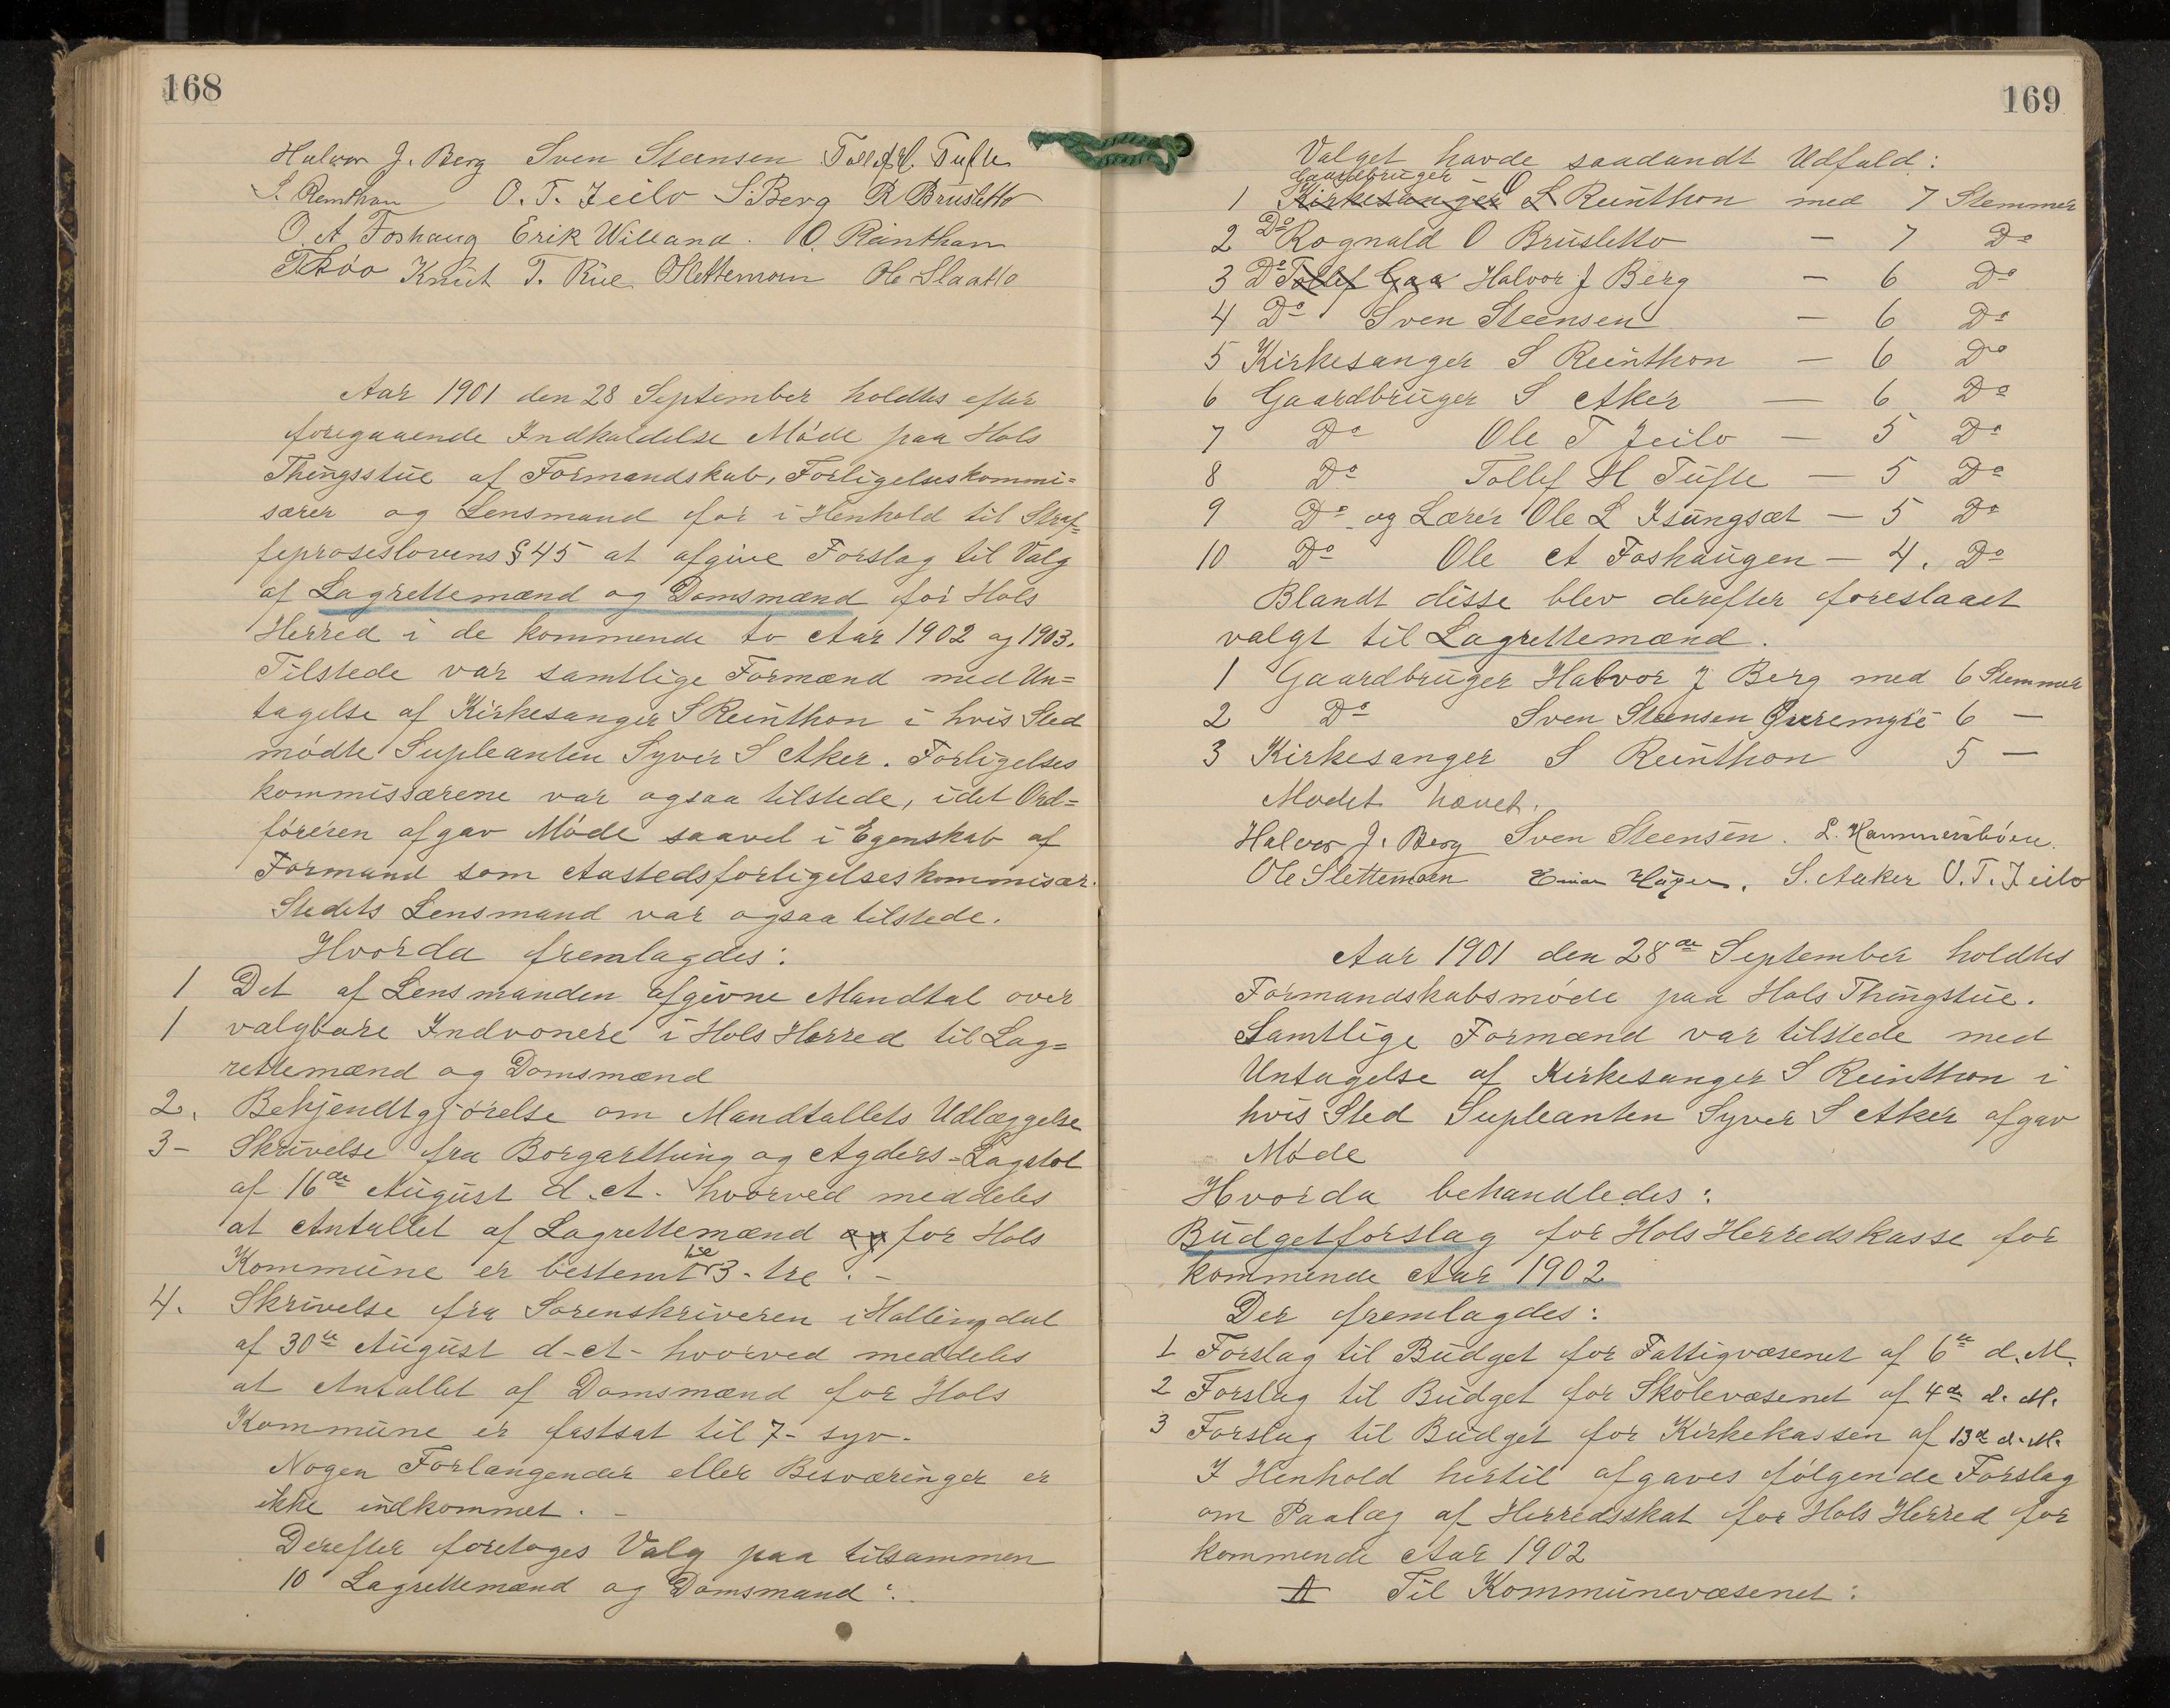 168
Halvor J. Berg Sven Steensen Tollef H. Tufte
S. Reinthon O. T. Jeilo S. Berg R Brusletto
O. A Foshaug Erik Willand. O. Rünthon
Knut T. Rue O Slettemoen Ole Slaatto
Aar 1901 den 28 September holdtes efter
foregaaende Indkaldelse Møde paa Hols
Thingsstue af Formandskab, Forligelseskommi=
særer og Lensmand for i Henhold til Straf=
feproseslovens § 45 at afgive Forslag til Valg
af Lagrettemænd og Domsmænd for Hols
Herred i de kommende to Aar 1902 og 1903.
Tilstede var samtlige Formænd med Un=
tagelse af Kirkesanger S Reinthon i hvis Sted
mødte Supleanten Syver S Aker. Forligelses
kommissærene var ogsaa tilstede, idet Ord=
føreren afgav Møde saavel i Egenskab af
Formand som Aastedsforligelseskommisær.
Stedets Lensmand var ogsaa tilstede.
Hvorda fremlagdes:
1 Det af Lensmanden afgivne Mandtal over
1 valgbare Indvonere i Hols Herred til Lag=
rettemænd og Domsmænd
2. Bekjendtgjørelse om Mandtallets Udlæggelse
3- Skrivelse fra Borgarthing og Agders-Lagstol
af 16de August d. A. hvorved meddeles
at Antallet af Lagrettemænd og for Hols
Kommune er bestemt til 3- tre. -
4. Skrivelse fra Sorenskriveren i Hallingdal
af 30te August d-A- hvorved meddeles
at Antallet af Domsmænd for Hols
Kommune er fastsat til 7- syv.
Nogen Forlangender eller Besværinger er
ikke indkommet. -
Derefter foretoges Valg paa tilsammen
10 Lagrettemænd og Domsmænd:
169
Valget havde saadandt Udfald:
Gaardbruger
1 Kirkesanger L Reinthon med 7 Stemmer
2 Do Rognald O Brusletto - 7 Do
3 Do Tollef Gaa Halvor J Berg - 6 Do
4 Do Sven Steensen - 6 Do
5 Kirkesanger S Reinthon - 6 Do
6 Gaardbruger S Aker - 6 Do
7 Do Ole T Jeilo - 5 Do
8 Do Tollef H Tufte - 5 Do
9 Do og Lærer Ole L Isungsæt - 5 Do
10 Do Ole A Foshaugen - 4. Do
Blandt disse blev derefter foreslaaet
valgt til Lagrettemænd.
1 Gaardbruger Halvor J Berg med 6 Stemmer
2 Do Sven Steensen 6 -
3 Kirkesanger S Reinthon 5 -
Mødet hævet.
Halvor J. Berg Sven Steensen. L. Hammersbøen.
Ole Slettemoen Einar Hagen. S. Aaker O. T. Jeilo
Aar 1901 den 28de September holdtes
Formandskabsmøde paa Hols Thingstue.
Samtlige Formænd var tilstede med
Untagelse af Kirkesanger S Reinthon i
hvis Sted Supleanten Syver S Aker afgav
Møde
Hvorda behandledes:
Budgetforslag for Hols Herredskasse for
kommende Aar 1902
Der fremlagdes:
1 Forslag til Budget for Fattigvæsenet af 6te d. M.
2 Forslag til Budget for Skolevæsenet af 4de d. M.
3 Forslag til Budget for Kirkekassen af 13de d. M.
I Henhold hertil afgaves følgende Forslag
om Paalæg af Herredsskat for Hols Herred for
kommende Aar 1902
A Til Kommunevæsenet: